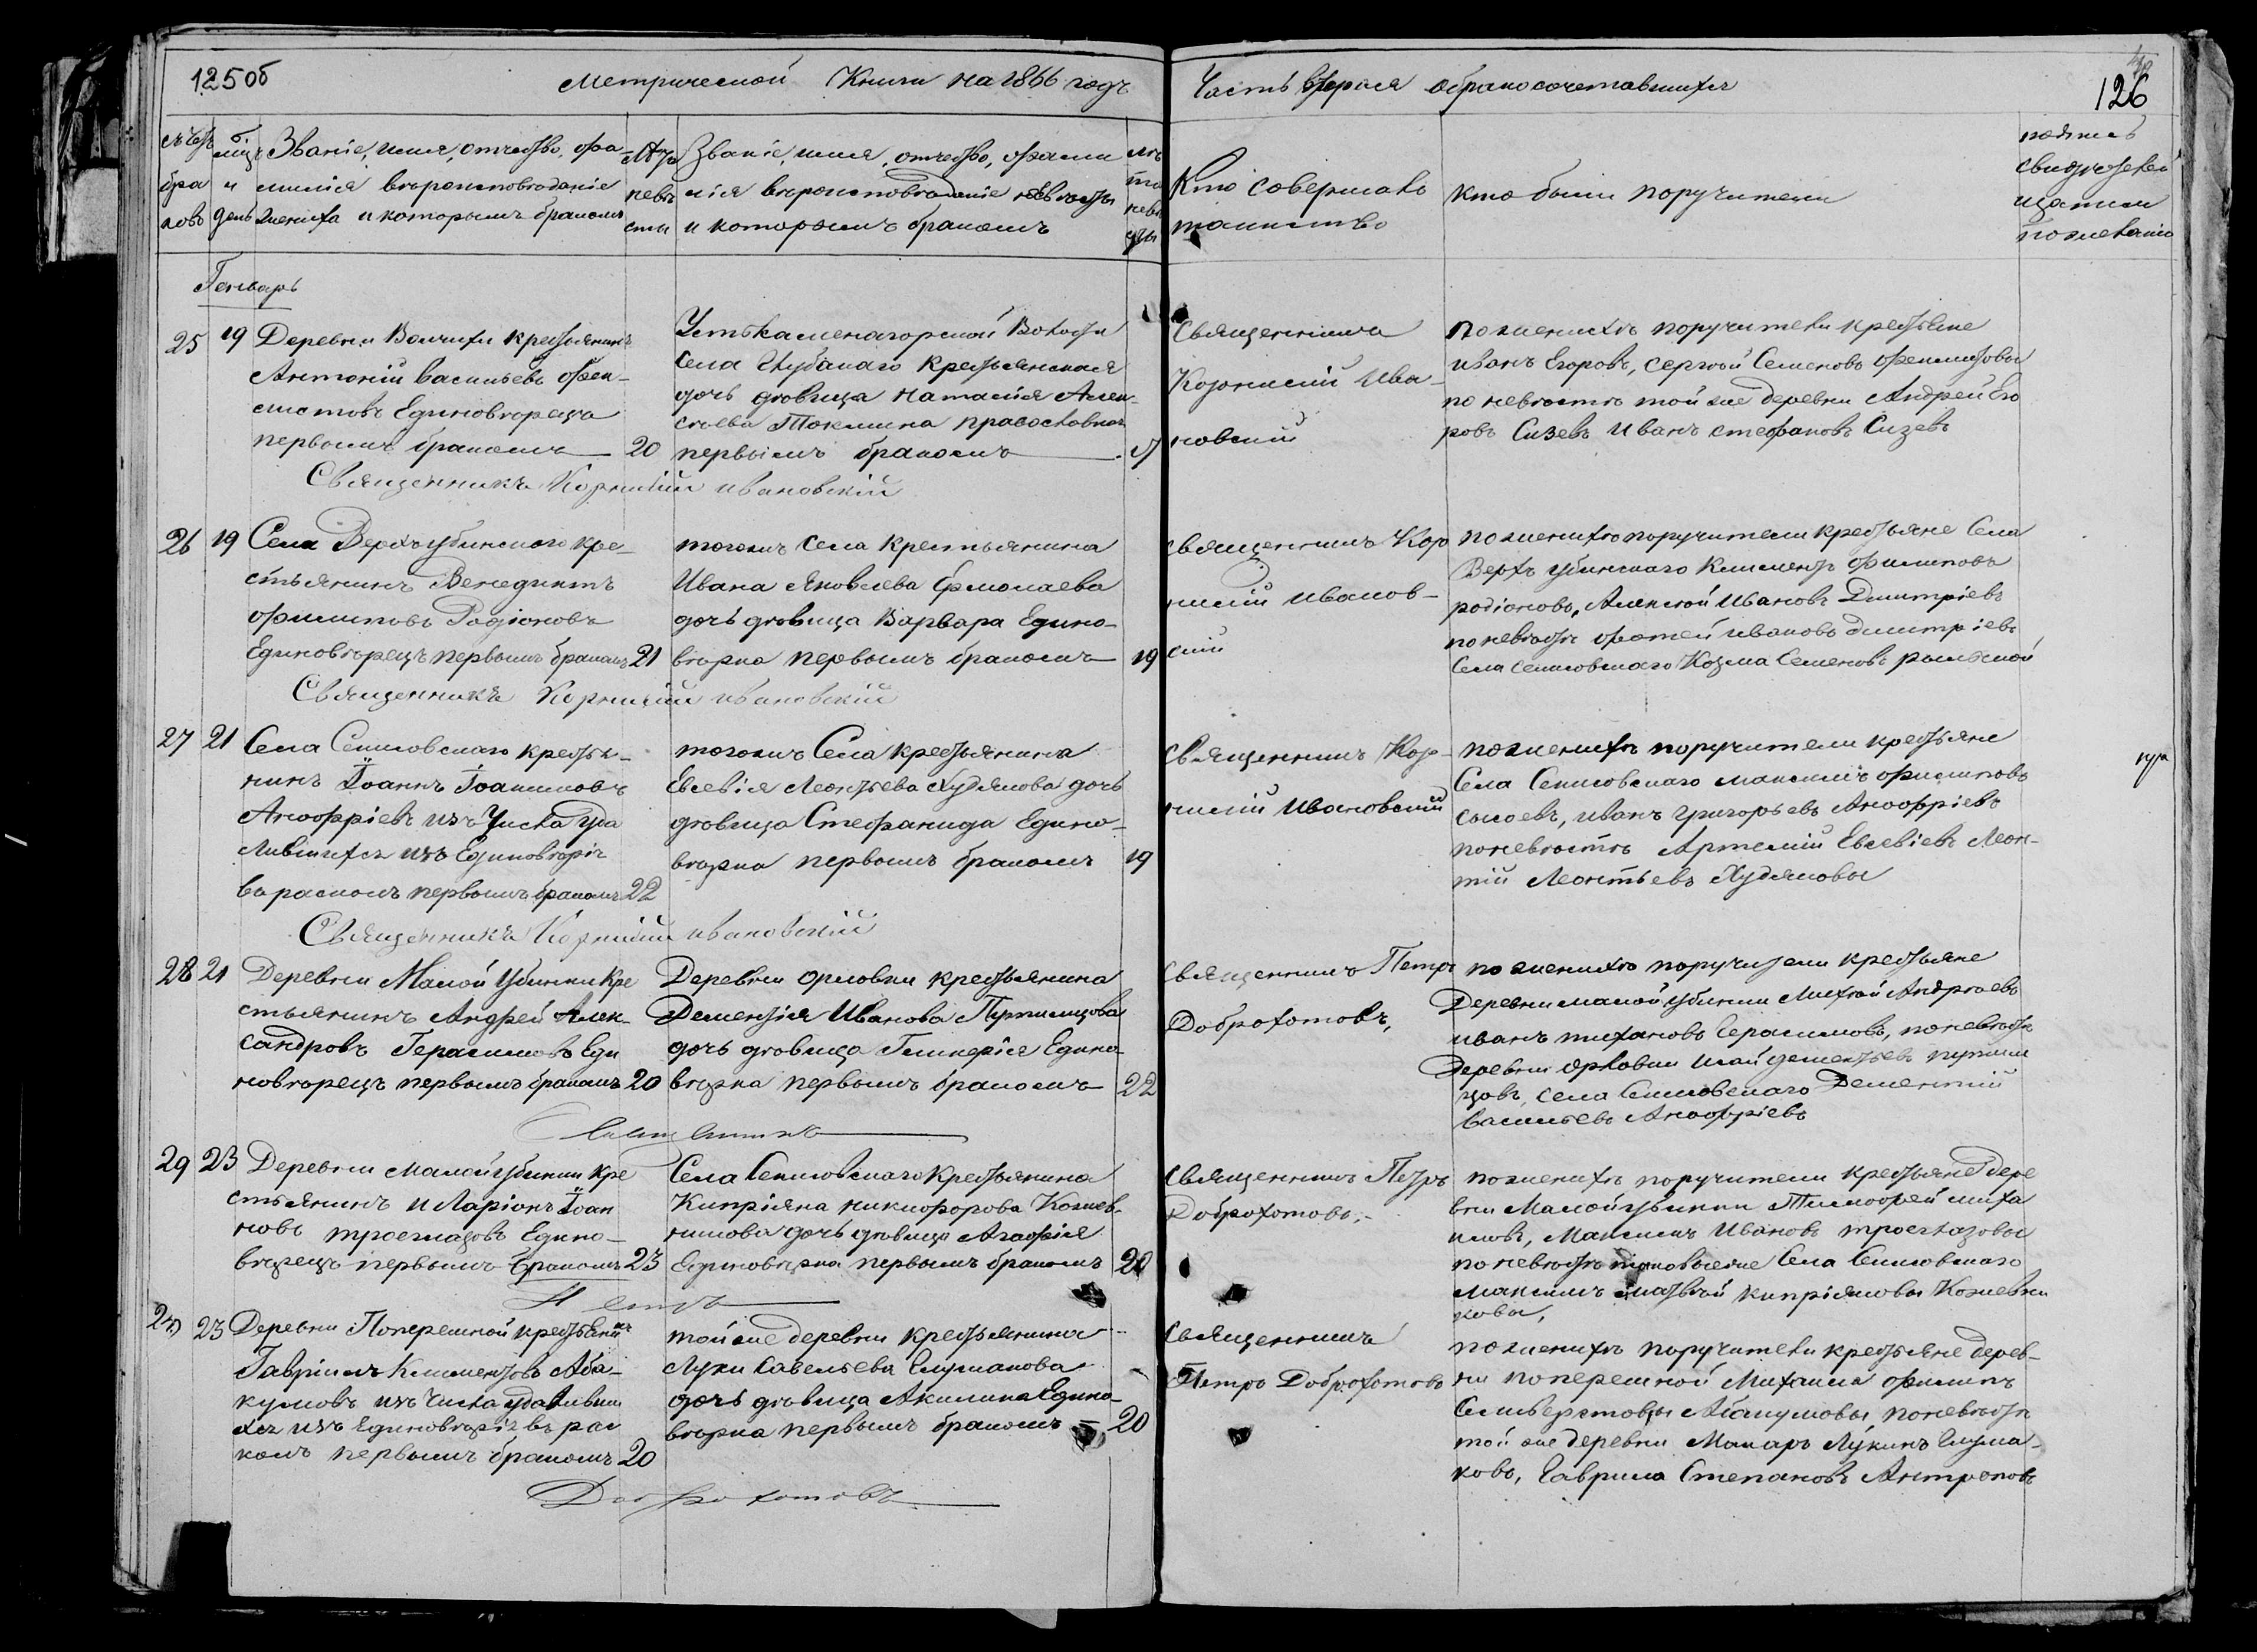 125об
Метрической Книги на 1866 годъ
Часть вторая о бракосочетавшихся
126
счетъ браковъ
мѣцъ и день
Званіе, имя, отчество, фа-
милія вѣроисповѣданіе
жениха и которымъ бракомъ
Званіе, имя, отчество, фами
лія вѣроисповѣданіе невѣсты
и которымъ бракомъ
лѣта невѣсты
Кто совершалъ
таинство
кто были поручители
подпись
свидѣтелей
по желанію
Генварь
25 19 Деревни Волчихи крестьянинъ
Антоній Васильевъ
Единовѣрецъ
первымъ бракомъ 20
Устькаменагорской Волости
села крестьянская
дочь дѣвица Наталія Алек-
сѣева Токмина православная
первымъ бракомъ
Священникъ
Корнилій Ива-
новский
по женихѣ поручители крестьяне
Иванъ Егоровъ, Сергѣй Семеновъ
по невѣстѣ той же деревни Андрей Его
ровъ Сизевъ Иванъ Стефановъ Сизевъ
Священникъ Корнилій Ивановскій
26 19 Села Верхъубинскаго кре-
стьянинъ Венедиктъ
Филиповъ Родіоновъ
Единовѣрецъ первымъ бракомъ 21
тогожъ села крестьянина
Ивана Яковлева Ермолаева
дочь дѣвица Варвара Едино-
вѣрка первымъ бракомъ 19
Священникъ Кор
нилій Иванов-
скій
по женихѣ поручители крестьяне Села
Верхъ убинскаго Климентъ Филиповъ
Родіоновъ, Алексѣй Ивановъ Дмитріевъ
по невѣстѣ Фотей Ивановъ Дмитріевъ
Села Секисовскаго Козма Семеновъ
Священникъ Корнилій Ивановскій
27 21 Села Секисовскаго крестья-
нинъ Іоаннъ Іоакимовъ
Аноофріевъ изъ числа уда
лившихся изъ Единовѣрія
въ расколъ первымъ бракомъ 22
тогожъ Села крестьянина
Евсевія Леонтьева Худякова дочь
дѣвица Стефанида Едино-
вѣрка первымъ бракомъ 19
Священникъ Кор-
нилій Ивановскій
по женихѣ поручители крестьяне
Села Секисовскаго Максимъ Филиповъ
Сысоевъ, Иванъ Григорьевъ Аноофріевъ
по невѣстѣ Артемій Евсевіевъ Леон-
тій Леонтьевъ Худяковы
Священникъ Корнилій Ивановскій
28 21 Деревни Малой Убинки кре
стьянинъ Андрей Алек-
сандровъ Герасимовъ Еди
новѣрецъ первымъ бракомъ 20
Деревни Орловки крестьянина
Дементія Иванова
дочь дѣвица Гликерія Едино-
вѣрка первымъ бракомъ 22
Священникъ Петръ
Доброхотовъ,
по женихѣ поручители крестьяне
Деревни малой убинки Михей Андреевъ
Иванъ Тихановъ Герасимовъ, по невѣстѣ
Деревни Орловки Исай Дементьевъ
села Секисовскаго Дементій
Васильевъ Аноофріевъ
Священникъ
29 23 Деревни Малой убинки кре
стьянинъ Иларіонъ Іоан
новъ Троеглазовъ Едино-
вѣрецъ первымъ бракомъ 23
Села Секисовскаго крестьянина
Кипріяна Никифорова Кожев-
никова дочь дѣвица Агафія
Единовѣрка первымъ бракомъ 20
Священникъ Петръ
Доброхотовъ.
по женихѣ поручители крестьяне дере
вни Малой убинки Тимофей Миха
иловъ, Максимъ Ивановъ Троеглазовы
по невѣстѣ таковыеже Села Секисовскаго
Максимъ Матвѣй Кипріяновы Кожевни
ковы,
Петръ
30 23 Деревни Поперешной крестьянинъ
Гавріилъ Климентовъ Аба-
кумовъ изъ числа удаливши
хся изъ Единовѣрія въ рас
колъ первымъ бракомъ 20
той же деревни крестьянина
Луки Савельева
дочь дѣвица Акилина Едино-
вѣрка первымъ бракомъ 20
Священникъ
Петръ Доброхотовъ
по женихѣ поручители крестьяне дерев-
ни поперешной Михаилъ Филипъ
Селиверстовы Абакумовы, по невѣстѣ
той же деревни Макаръ Лукинъ
Гаврила Степановъ Антроповъ
Доброхотовъ